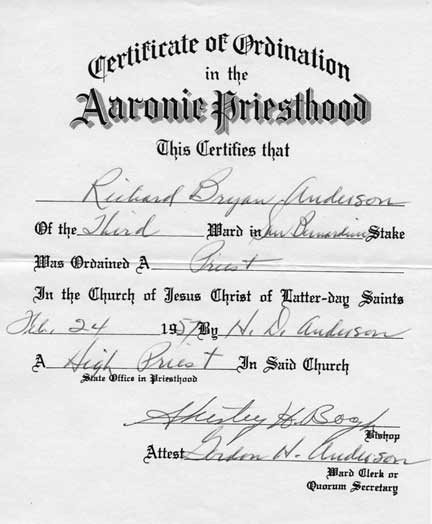 Certificate of Ordination
in the
Aaronic Priesthood
This Certifies that
Richard Bryan Anderson
Of the Third Ward in San Bernardino Stake
Was Ordained A Priest
In the Church of Jesus Christ of Latter-day Saints
Feb. 24 1957 By H. D. Anderson
A High Priest In Said Church
State Office in Priesthood
H.
Bishop
Attest Gordon H. Anderson
Ward Clerk or
Quorum Secretary